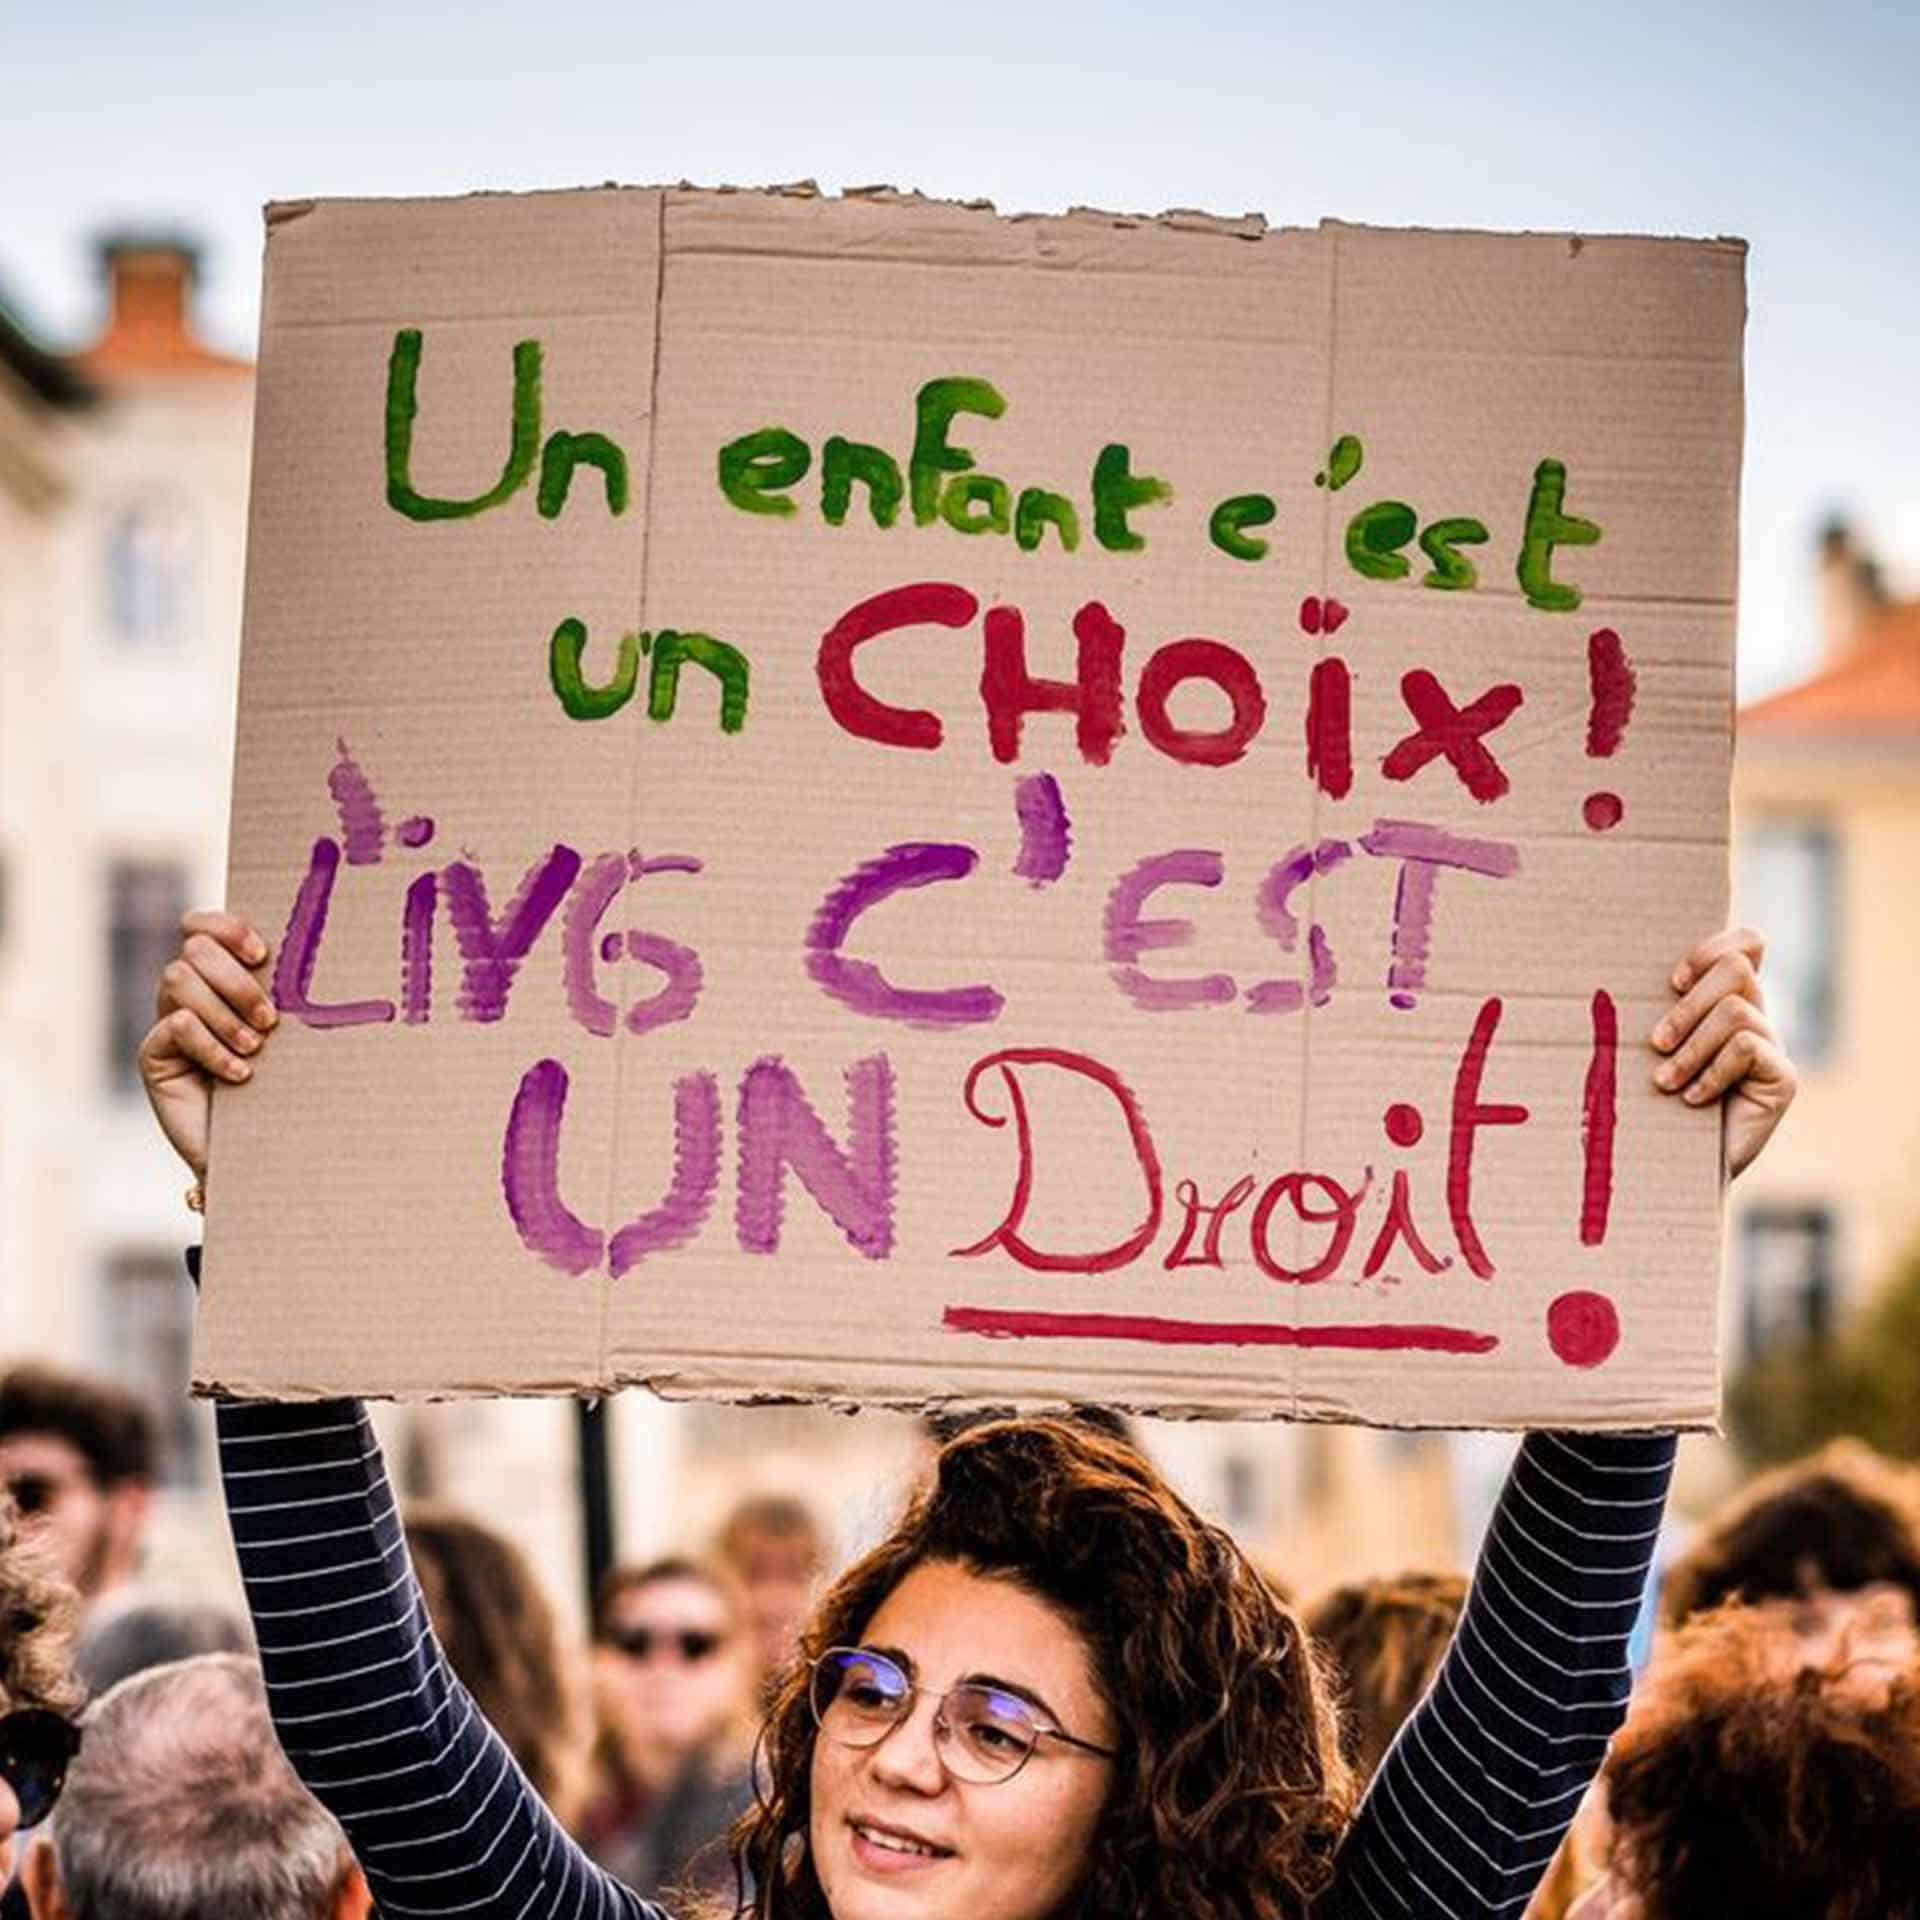 Un enfant c'est
un CHOiX!
L'iVG C'EST
UN Droit!